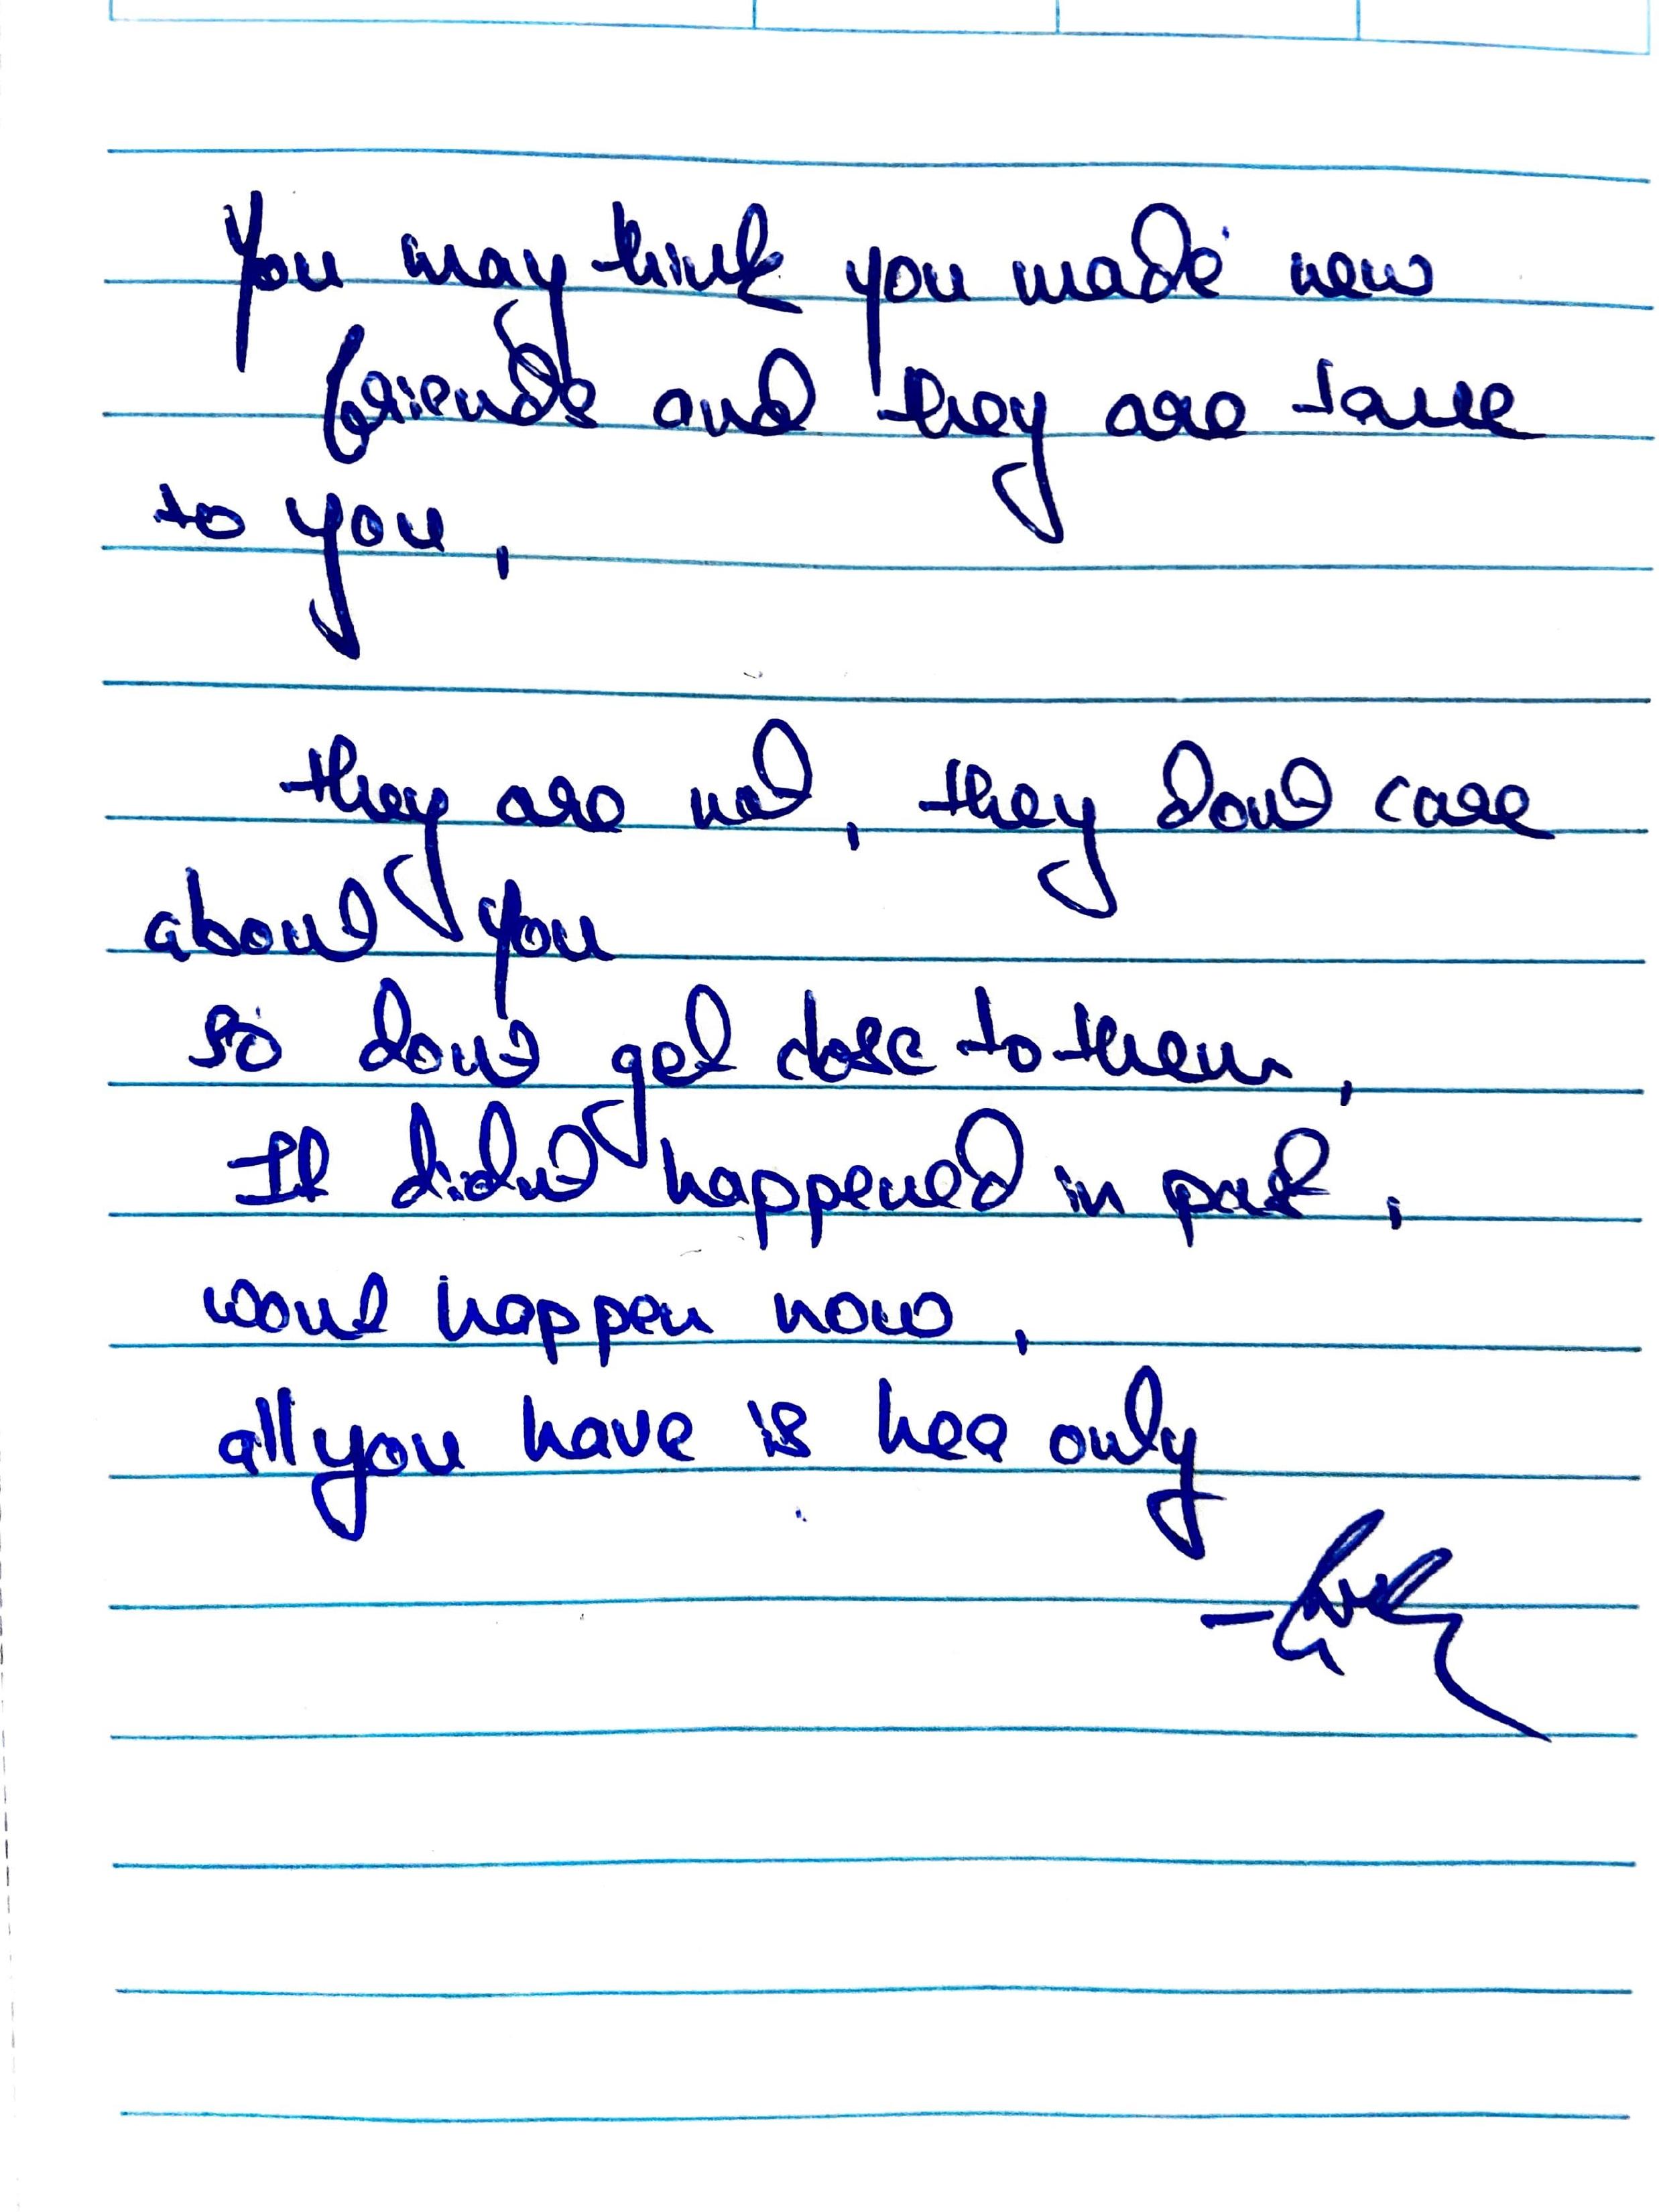 You may think you made new
friends and they are true
to you,
they are not, they dont care
about you
so dont get close to them,
It didnt happened in past,
wont happen now,
all you have is her only